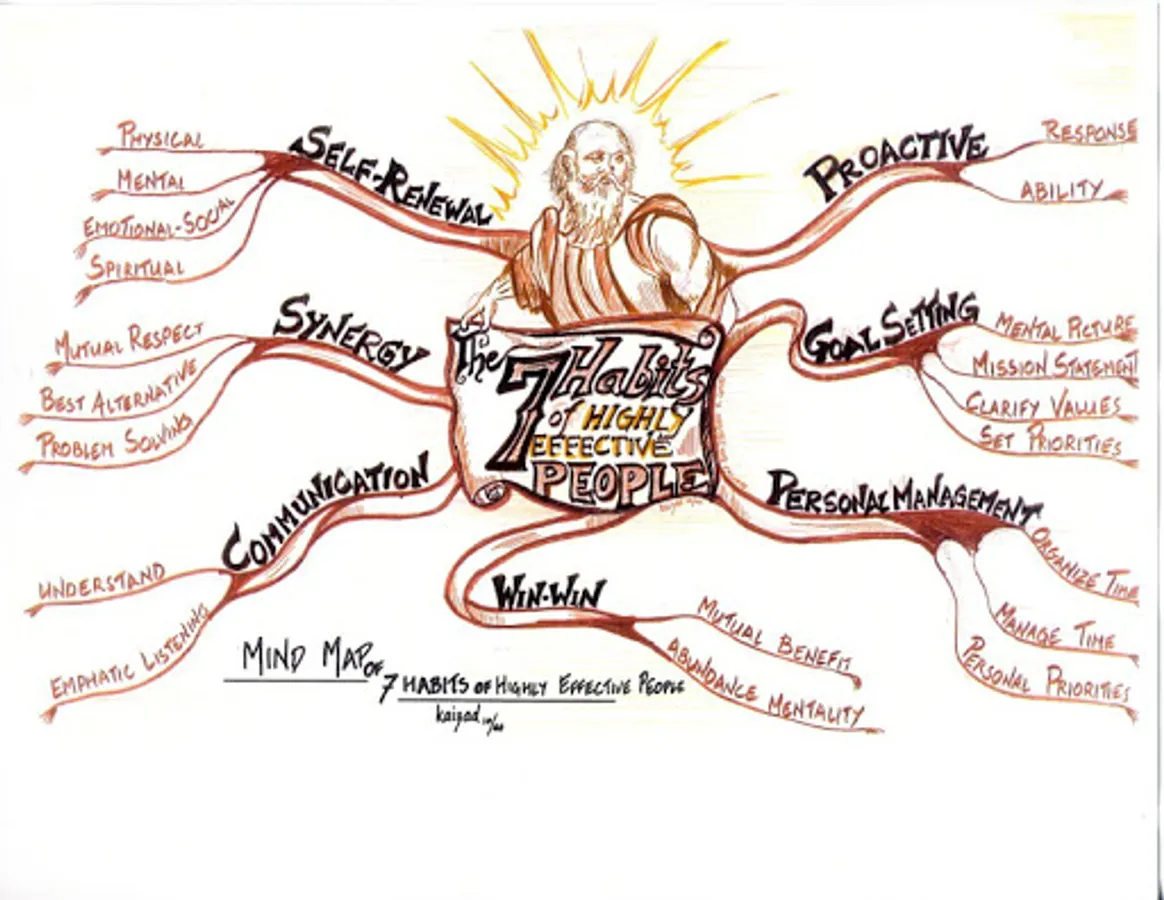 The
7 Habits
of HIGHLY
EFFECTIVE
PEOPLE
PROACTIVE
RESPONSE
ABILITY
GOAL SETTING
MENTAL PICTURE
MISSION STATEMENT
CLARIFY VALUES
SET PRIORITIES
PERSONAL MANAGEMENT
ORGANIZE TIME
MANAGE TIME
PERSONAL PRIORITIES
WIN-WIN
MUTUAL BENEFIT
ABUNDANCE MENTALITY
COMMUNICATION
UNDERSTAND
EMPHATIC LISTENING
SYNERGY
MUTUAL RESPECT
BEST ALTERNATIVE
PROBLEM SOLVING
SELF-RENEWAL
PHYSICAL
MENTAL
EMOTIONAL-SOCIAL
SPIRITUAL
MIND MAP OF
7 HABITS OF HIGHLY EFFECTIVE PEOPLE
kaizad